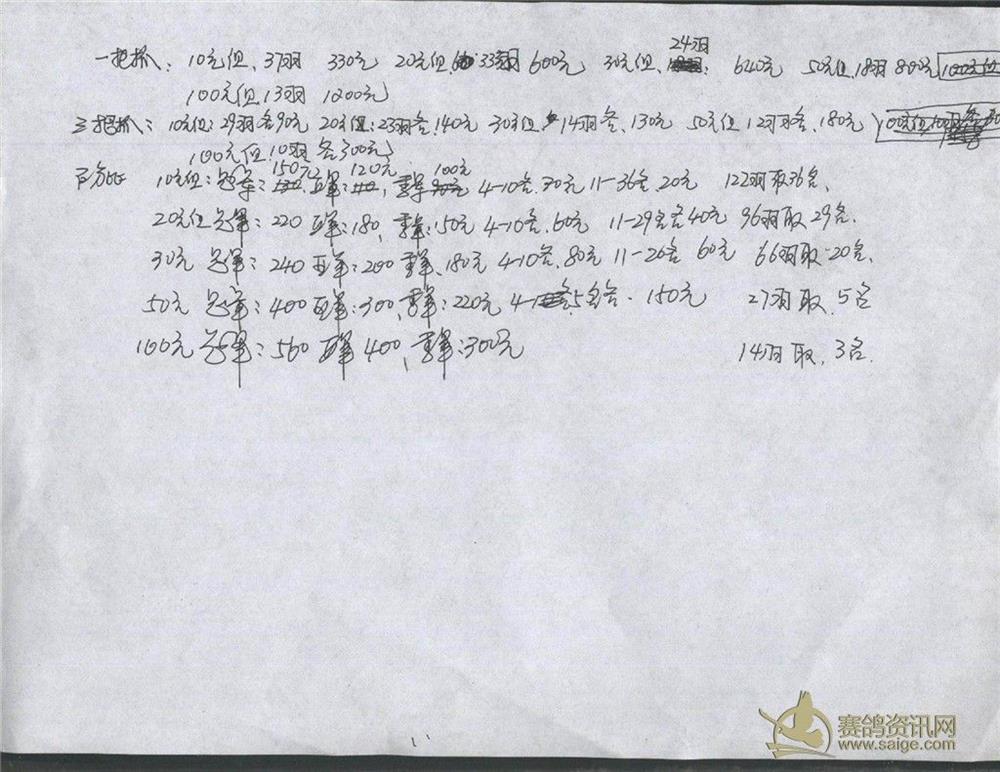 一把抓: 10元组、37羽 330元 20元组、33羽 600元 30元组、24羽 640元 50元组、18羽 800元
100元组 13羽 1200元
三把抓: 10元组: 29羽各90元 20元组: 23羽各、140元 30元组 14羽各、130元 50元组 12羽各、180元
100元组、10羽各300元
百分比 10元组: 冠军: 150元 亚军: 120元, 季军 100元 4-10名、30元 11-36名 20元 122羽取36名、
20元组 冠军: 220 亚军: 180, 季军: 150元 4-10名、60元 11-29名各40元 96羽取29名、
30元 冠军: 240 亚军: 200 季军、180元 4-10名、80元 11-20名 60元 66羽取20名、
50元 冠军: 400 亚军: 300, 季军: 220元 4-5名各 150元 27羽取、5名
100元 冠军: 560 亚军 400、季军: 300元 14羽取、3名.
赛鸽资讯网
www.saige.com